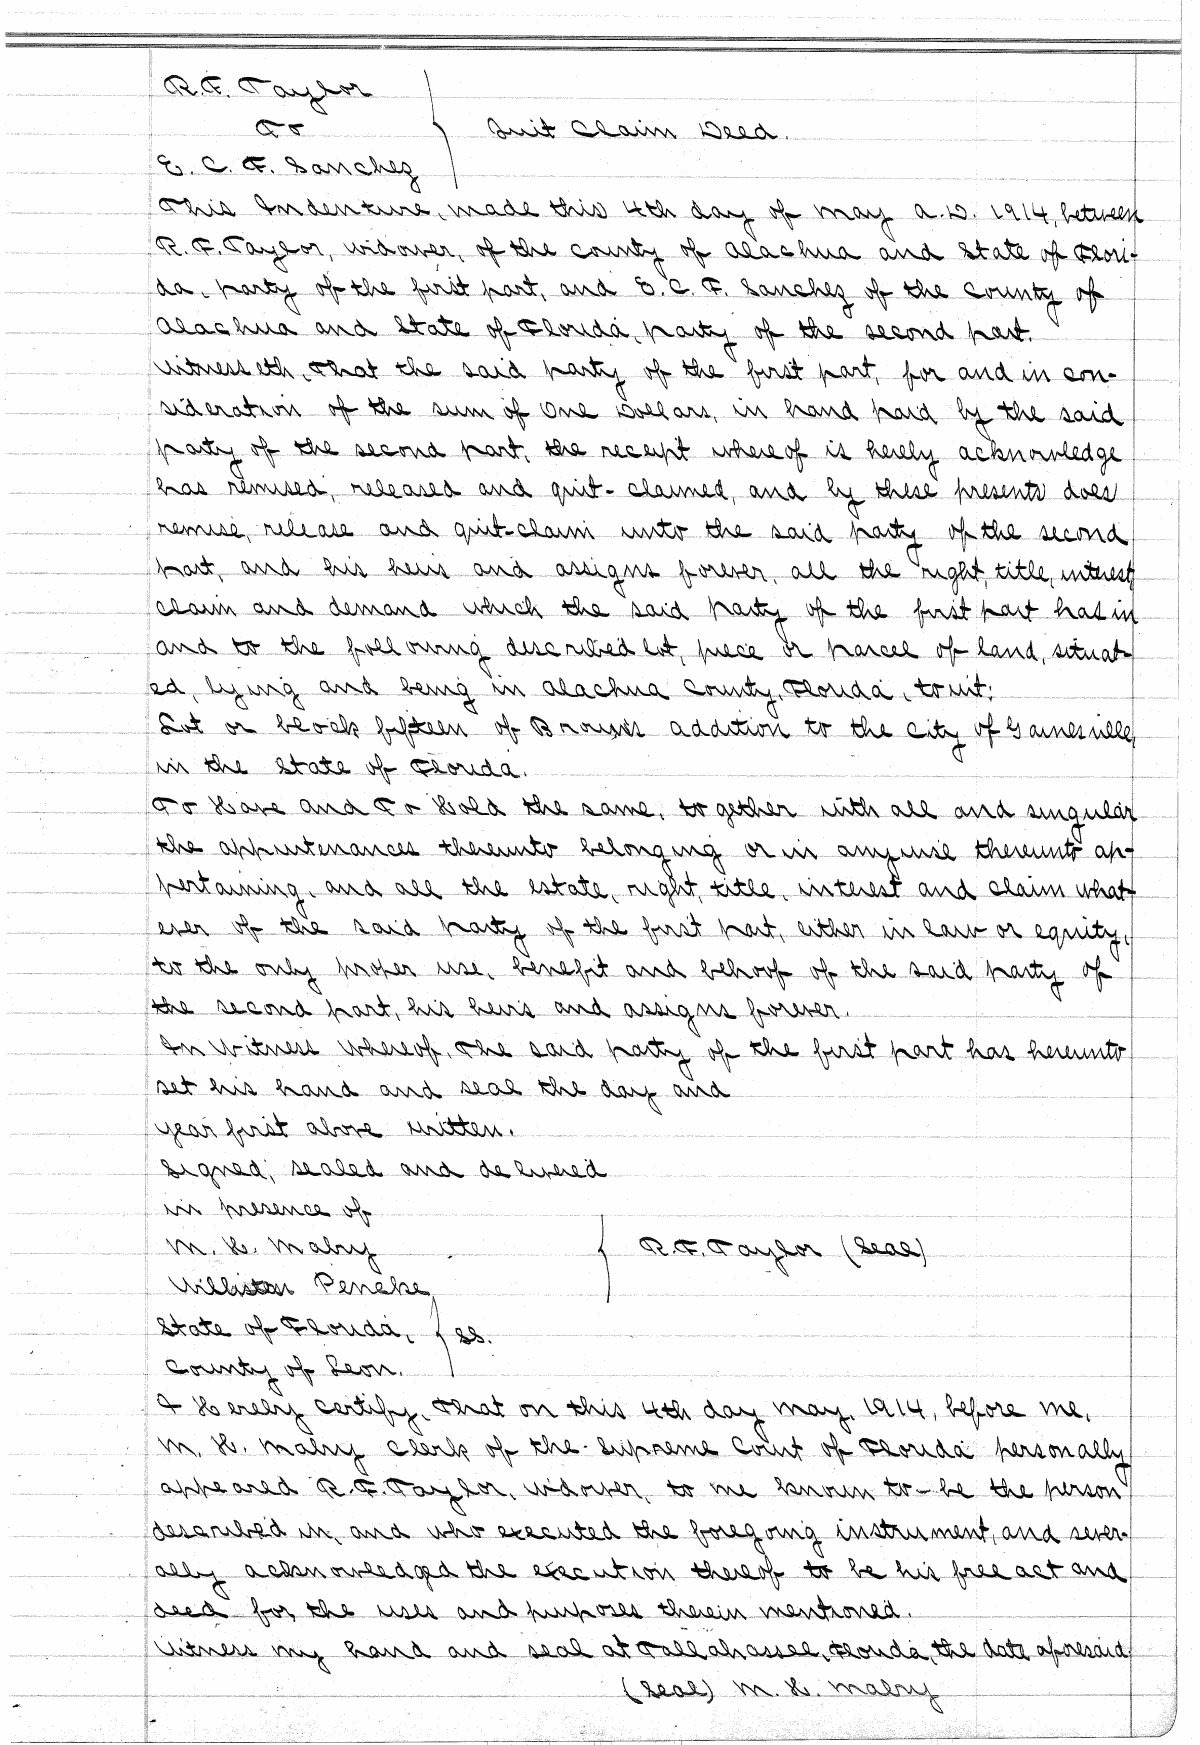 R.F. Taylor
To
Quit Claim Deed.
E. C. F. Sanchez
This Indenture, made this 4th day of May A.D. 1914, between
R.F. Taylor, widower, of the County of Alachua and State of Flori-
da, party of the first part, and E. C. F. Sanchez of the County of
Alachua and State of Florida, party of the second part.
Witnesseth, That the said party of the first part, for and in con-
sideration of the sum of One Dollars, in hand paid by the said
party of the second part, the receipt whereof is hereby acknowledge
has remised, released and quit-claimed, and by these presents does
remise, release and quit-claim unto the said party of the second
part, and his heirs and assigns forever, all the right, title, interest,
claim and demand which the said party of the first part has in
and to the following described lot, piece or parcel of land, situat-
ed, lying and being in Alachua County, Florida, towit:
Lot or block fifteen of Brown's addition to the City of Gainesville,
in the State of Florida.
To Have and To Hold the same, together with all and singular
the appurtenances thereunto belonging or in anywise thereunto ap-
pertaining, and all the estate, right, title, interest and claim what-
ever of the said party of the first part, either in law or equity,
to the only proper use, benefit and behoof of the said party of
the second part, his heirs and assigns forever.
In Witness Whereof, The said party of the first part has hereunto
set his hand and seal the day and
year first above written.
Signed, sealed and delivered
in presence of
M. H. Mabry
R.F. Taylor (Seal)
Williston
State of Florida, ss.
County of Leon.
I Hereby certify, That on this 4th day May, 1914, before me,
M. H. Mabry Clerk of the Supreme Court of Florida personally
appeared R.F. Taylor, widower, to me known to-be the person
described in, and who executed the foregoing instrument, and sever-
ally acknowledged the execution thereof to be his free act and
deed for the uses and purposes therein mentioned.
Witness my hand and seal at Tallahassee, Florida, the date aforesaid
(Seal) M. H. Mabry